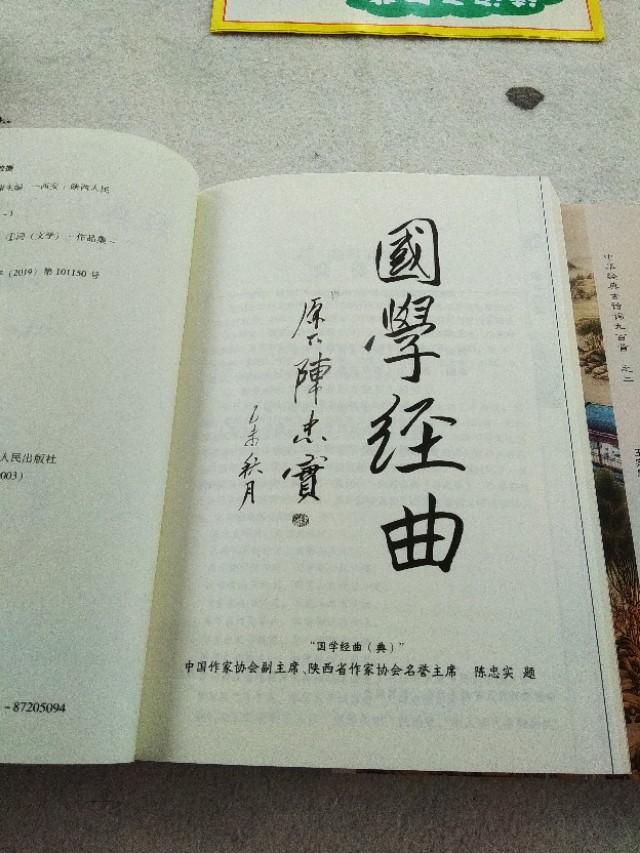 陕西人民
(文学)－作品集－
(2019) 第 101150 号
人民出版社
003）
－87205094
國學經曲
原下陳忠實
乙未秋月
“国学经曲（典）”
中国作家协会副主席、陕西省作家协会名誉主席 陈忠实 题
中华经典古诗词九百首 之二